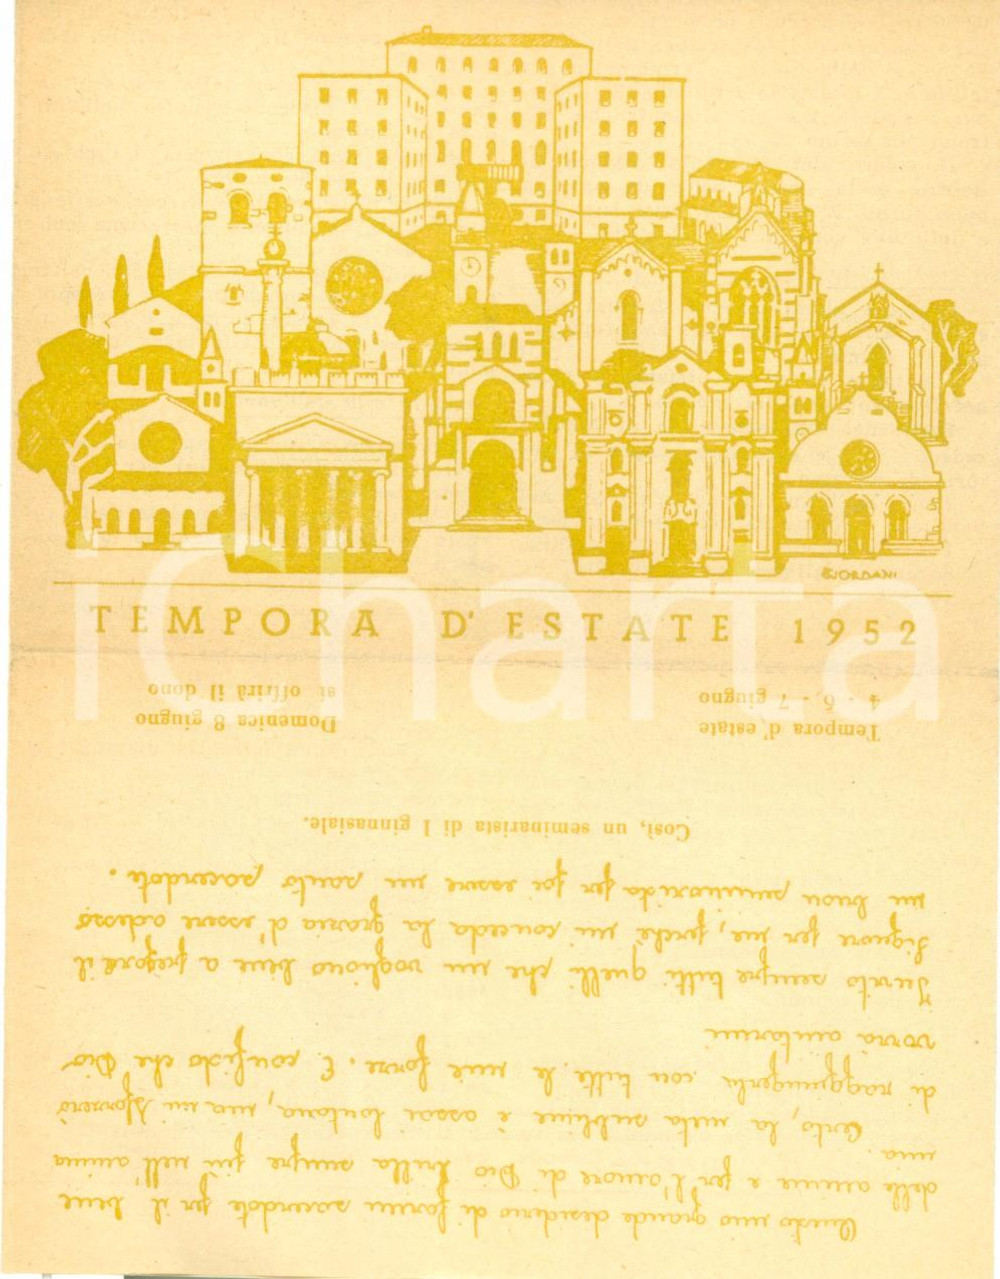 GIORDANI
TEMPORA D'ESTATE 1952
Questo mio grande desiderio di farmi sacerdote per il bene
delle anime e per l'amore di Dio brilla sempre più nell'anima
mia.
Certo, la meta sublime è assai lontana, ma mi sforzerò
di raggiungerla con tutte le mie forze. E confido che Dio
vorrà aiutarmi
Invito sempre tutti quelli che mi vogliono bene a pregare il
Signore per me, perchè mi conceda la grazia d'essere adesso
un buon seminarista per poi essere un santo sacerdote.
Così, un seminarista di I ginnasiale.
Tempora d'estate
4 - 6, - 7 giugno
Domenica 8 giugno
si offrirà il dono
iCharta